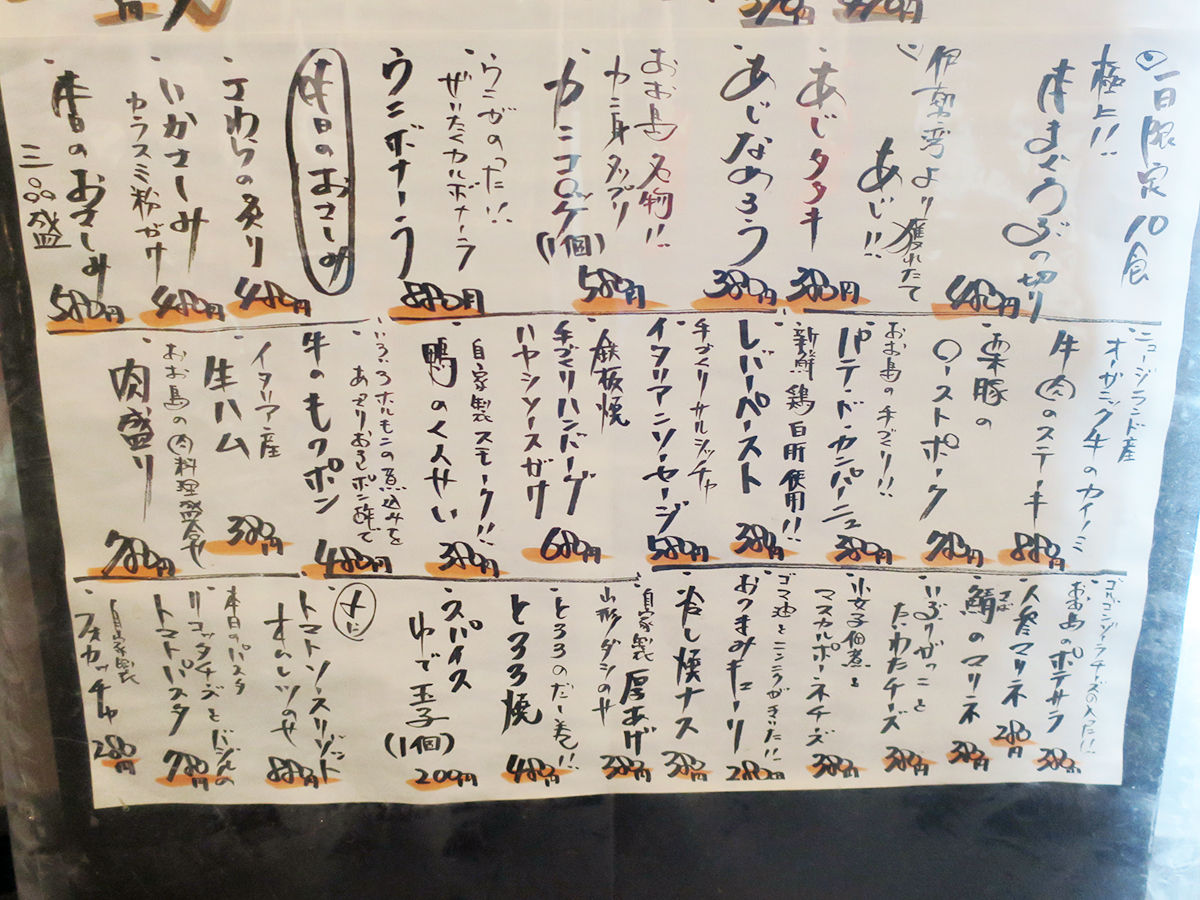 円
390円
490円
一日限定10食
極上!!
本まぐろぶつ切り
480円
伊勢湾より獲れたて
あじ!!
あじタタキ
380円
あじなめろう
380円
おお島名物!!
カニ身タップリ
カニコロッケ
(1個)
580円
ウニがのった!!
ぜいたくカルボナーラ
ウニボナーラ
880円
本日のおさしみ
さわらの炙り
480円
いかさしみ
カラスミ粉がけ
480円
本日のおさしみ
三点盛
580円
ニュージランド産
オーガニック牛のカイノミ
牛肉のステーキ
880円
栗豚の
ローストポーク
780円
おお島の手づくり!!
パテ・ド・カンパーニュ
380円
新鮮鶏白肝使用!!
レバーペースト
380円
手づくりサルシッチャ
イタリアンソーセージ
580円
鉄板焼
手づくりハンバーグ
ハヤシソースがけ
680円
自家製スモーク!!
鴨のくんせい
380円
いろいろホルモンの煮込みを
あっさりおろしポン酢で
牛のもつポン
480円
イタリア産
生ハム
380円
おお島の肉料理盛合せ
肉盛り
780円
ゴルゴンゾーラチーズの入った!!
おお島のポテサラ
380円
人参マリネ
280円
さば
鯖のマリネ
380円
いぶりがっこと
たわたチーズ
380円
小女子佃煮と
マスカルポーネチーズ
380円
ゴマ油とニンニクがきいた!!
おつまみキューリ
280円
冷し燻ナス
380円
自家製厚あげ
山形ダシのせ
380円
とろろのだし巻!!
とろろ焼
480円
スパイス
ゆで玉子
(1個)
200円
〆に
トマトソースリゾット
オムレツのせ
880円
本日のパスタ
リコッタチーズとバジルの
トマトパスタ
780円
自家製
フォカッチャ
280円